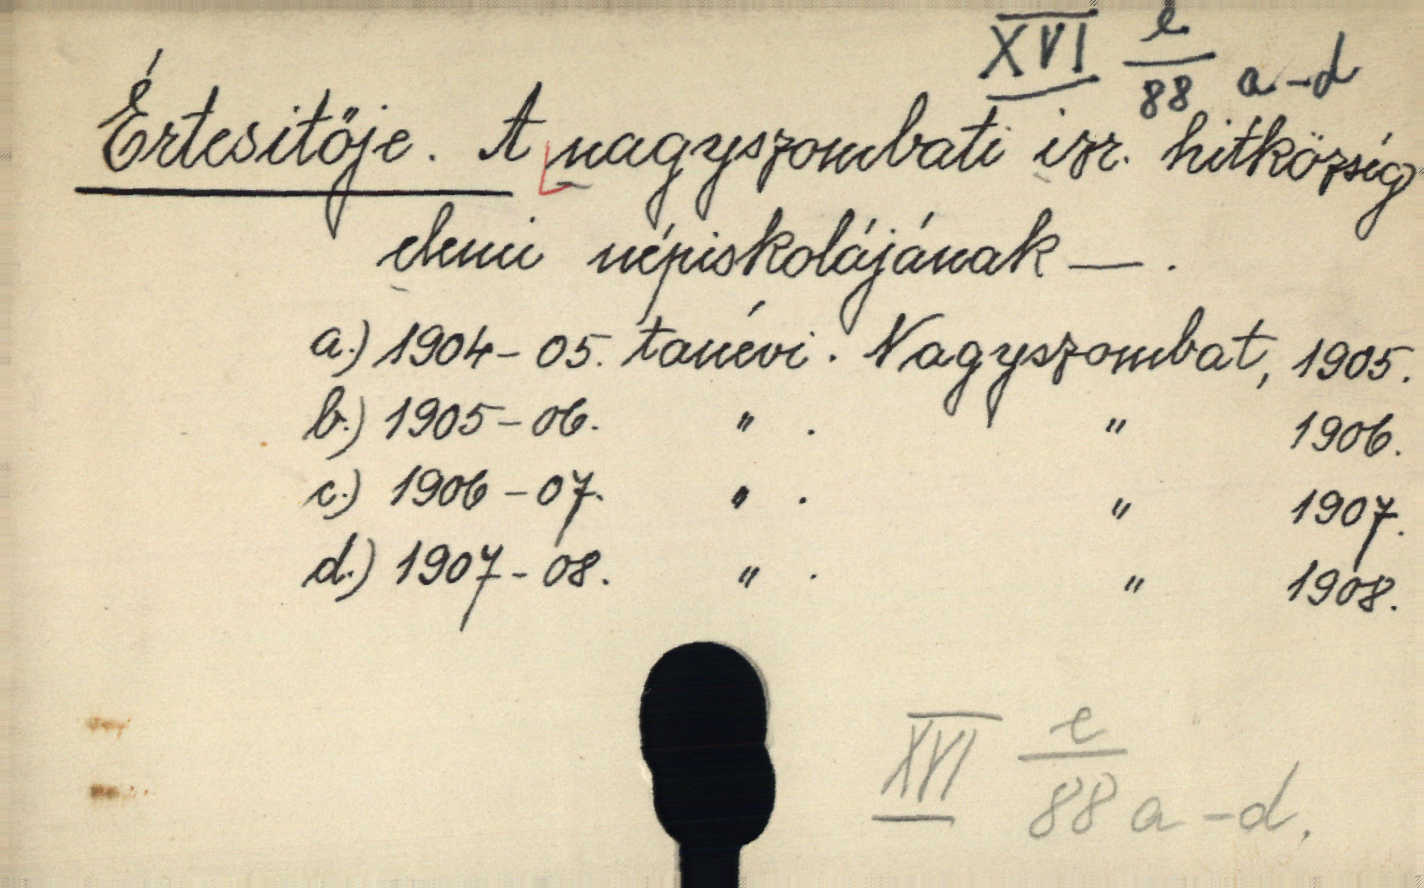 XVI e/88 a-d
Értesitője. A nagyszombati izr. hitközség
elemi népiskolájának — .
a.) 1904-05. tanévi. Nagyszombat, 1905.
b.) 1905-06. " . " 1906.
c.) 1906-07. " . " 1907.
d.) 1907-08. " . " 1908.
XVI e/88 a-d.